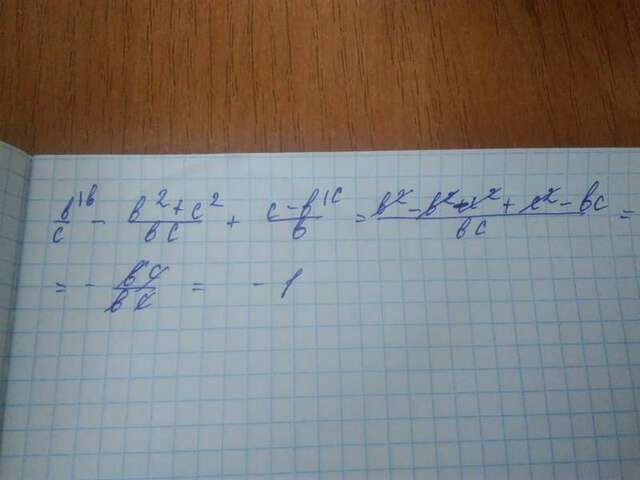 b/c |b - b² + c² / bc + c - b / b |c = b² - b² - c² + c² - bc / bc =
= - bc / bc = - 1